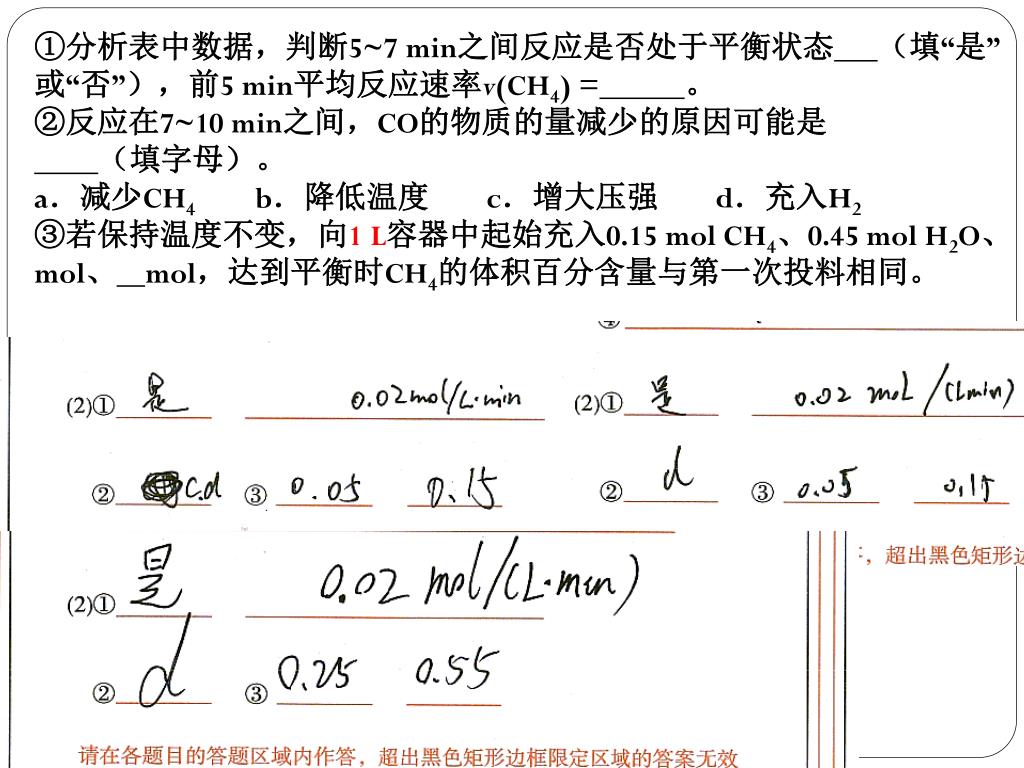 ①分析表中数据，判断5~7 min之间反应是否处于平衡状态___（填“是”
或“否”），前5 min平均反应速率v(CH₄) =______。
②反应在7~10 min之间，CO的物质的量减少的原因可能是
____（填字母）。
a．减少CH₄ b．降低温度 c．增大压强 d．充入H₂
③若保持温度不变，向1 L容器中起始充入0.15 mol CH₄、0.45 mol H₂O、
mol、__mol，达到平衡时CH₄的体积百分含量与第一次投料相同。
(2)① 是 0.02mol/L·min
② c.d ③ 0.05 0.15
(2)① 是 0.02 mol/(Lmin)
② d ③ 0.05 0.15
(2)① 是 0.02 mol/(L·min)
② d ③ 0.25 0.55
，超出黑色矩形边
请在各题目的答题区域内作答，超出黑色矩形边框限定区域的答案无效